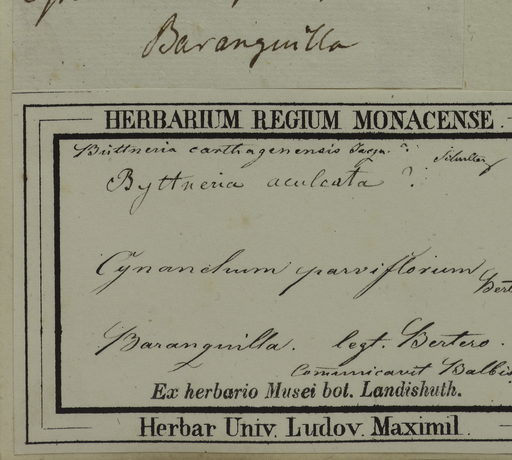 Baranquilla
HERBARIUM REGIUM MONACENSE
Büttneria carthagenensis Jacqu. ?
Byttneria aculeata ?
Cynanchum parviflorum
Bert
Baranquilla. legt. Bertero.
Comunicavit Balbis
Ex herbario Musei bot. Landishuth.
Herbar Univ. Ludov. Maximil